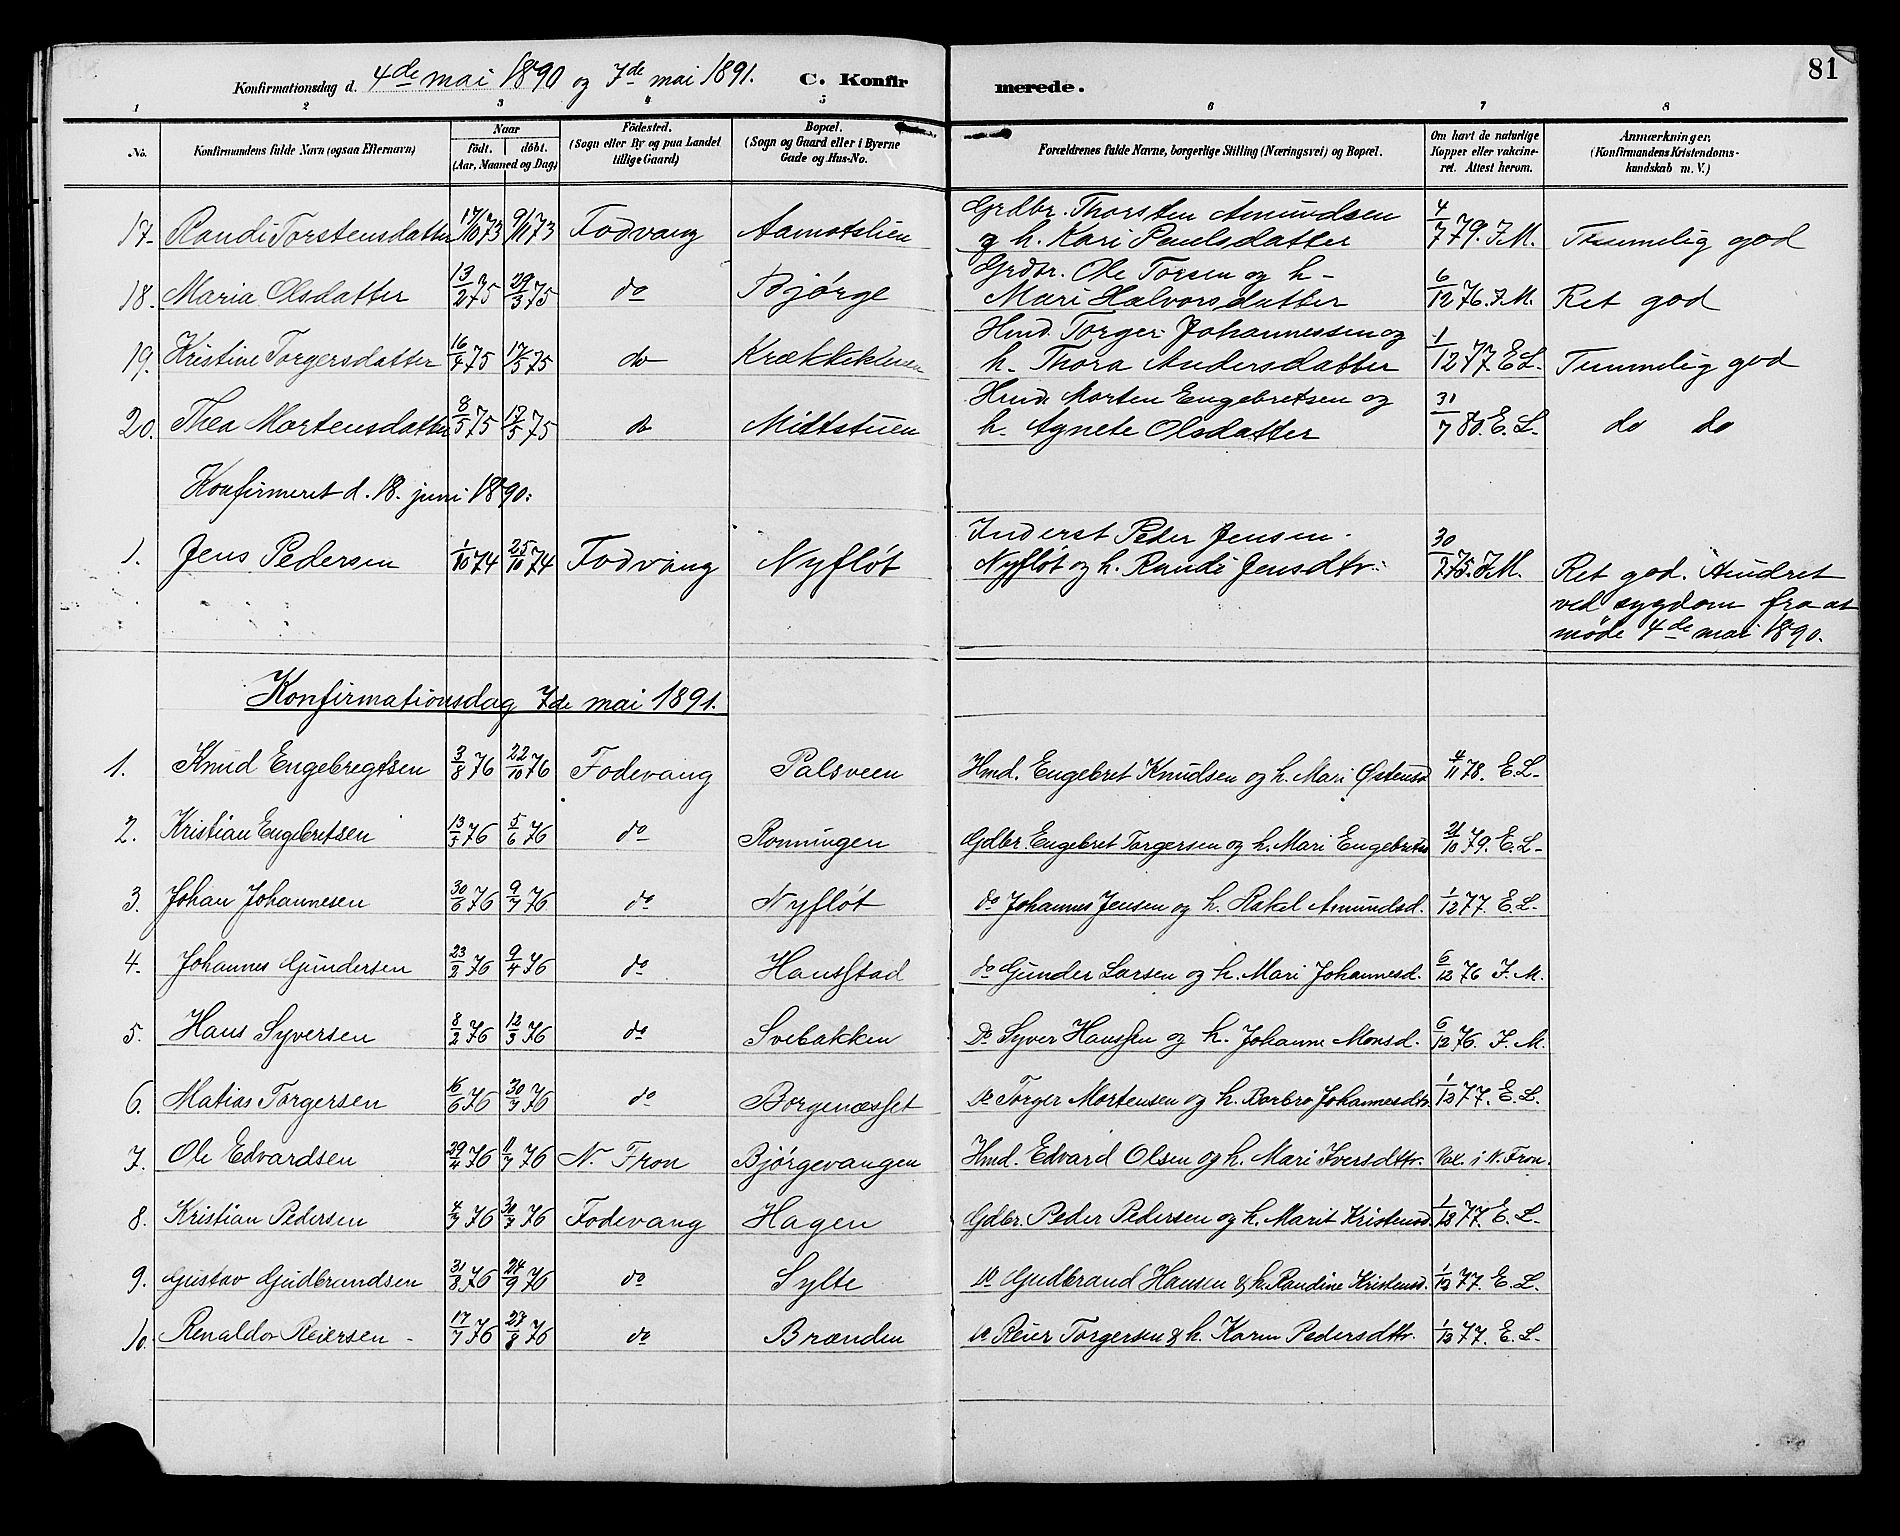 81
Konfirmationsdag d. 4de mai 1890 og 7de mai 1891. C. Konfirmerede.
1 2 3 4 5 6 7 8
No. Konfirmandens fulde Navn (ogsaa Efternavn) Naar födt. döbt. (Aar, Maaned og Dag) Födested. (Sogn eller By og paa Landet tillige Gaard) Bopæl. (Sogn og Gaard eller i Byerne Gade og Hus-No. Forældrenes fulde Navne, borgerlige Stilling (Næringsvei) og Bopæl. Om havt de naturlige Kopper eller vakcineret. Attest herom. Anmærkninger. (Konfirmandens Kristendomskundskab m. V.)
17. Randi Torstensdatter 17/10 73 9/11 73 Fodvang Aamotslien Grdbr. Thorsten Amundsen og h. Kari Paulsdatter 4/7 79. J. M. Temmelig god
18. Maria Olsdatter 13/2 75 29/3 75 do Bjørge Grdbr. Ole Torsen og h- Mari Halvorsdatter 6/12 76. J. M. Ret god
19. Kristine Torgersdatter 16/4 75 17/5 75 do Hmd. Torger Johannessen og h. Thora Andersdatter 1/12 77 E L. Temmelig god
20. Thea Mortensdatter 8/5 75 /5 75 do Midtstuen Hmd. Morten Engebretsen og h. Agnete Olsdatter 31/7 80. E. L. do do
Konfirmeret d. 18. juni 1890:
1. Jens Pedersen 1/10 74 25/10 74 Fodvang Nyfløt Inderst Peder Jensen. Nyfløt og h. Randi Jensdtr: 30/2 75. J. M. Ret god. Hindret
ved sygdom fra at
møde 4de mai 1890.
Konfirmationsdag 7de mai 1891.
1. Knud Engebregtsen 3/8 76 22/10 76 Fodevang Palsveen Hmd. Engebret Knudsen og h. Mari Østensd 4/11 78. E. L.
2. Kristian Engebretsen 13/ 76 5/6 76 do Ronningen Gdbr. Engebret Torgersen og h. Mari Engebretsd 21/10 79. E. L.
3. Johan Johannesen 30/6 76 9/7 76 do Nyfløt do Johannes Jensen og h. Rakel Amundsd. 1/12 77. E. L.
4. Johannes Gundersen 23/2 76 9/4 76 do Hansstad do Gunder Larsen og h. Mari Johannesd. 6/12 76 J. M.
5. Hans Syversen 8/2 76 12/3 76 do Svebakken Do Syver Hanssen og h. Johanne Monsd. 6/12 76. J. M.
6. Matias Torgersen 16/6 76 30/7 76 do Borgenæsset Do Torger Mortensen og h. Barbro Johannesdtr. 1/12 77. E. L.
7. Ole Edvardsen 29/4 76 11/7 76 N. Fron Bjørgevangen Hmd. Edvard Olsen og h. Mari Iversdttr. Vax. i N. Fron.
8. Kristian Pedersen 4/7 76 30/7 76 Fodevang Hagen Gdbr. Peder Pedersen og h. Marit Kristensd. 1/12 77. E. L.
9. Gustav Gudbrandsen 31/8 76 24/9 76 do Sylte Do Gudbrand Hansen & h. Randine Kristensd. 1/12 77. E. L.
10. Renaldo Reiersen - 17/7 76 27/8 76 do Brænden Do Reier Torgersen & h. Karen Pedersdtr. 1/12 77. E. L.